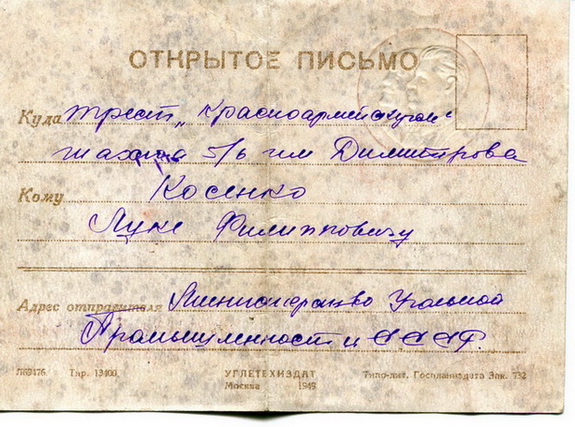 ОТКРЫТОЕ ПИСЬМО
Куда трест „Красноармейскуголь"
шахта 5/6 им Димитрова
Кому Косенко
Луке Филипповичу
Адрес отправителя Министерство Угольной
Промышленности СССР.
Тир. 13400. УГЛЕТЕХИЗДАТ Типо-лит. Госпланиздата Зак. 732
Москва 1949